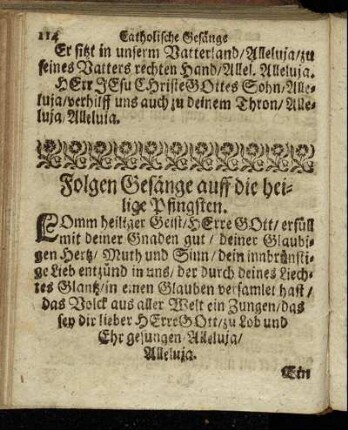 114 Catholische Gesänge
Er sitzt in unserm Vatterland/Alleluja/zu
seines Vatters rechten Hand/Allel. Alleluja.
HErr JEsu CHristeGOttes Sohn/Alle-
luja/verhilff uns auch zu deinem Thron/Alle-
luja/Alleluia.
Folgen Gesänge auff die hei-
lige Pfingsten.
KOmm heiliger Geist/HErre GOtt/erfüll
mit deiner Gnaden gut/deiner Glaubi-
gen Hertz/Muth und Sinn/dein innbrünsti-
ge Lieb entzünd in uns/der durch deines Liech-
tes Glantz/in einen Glauben versamlet hast/
das Volck aus aller Welt ein Zungen/das
sey dir lieber HErreGOtt/zu Lob und
Ehr gesungen Alleluja/
Alleluja.
Ein